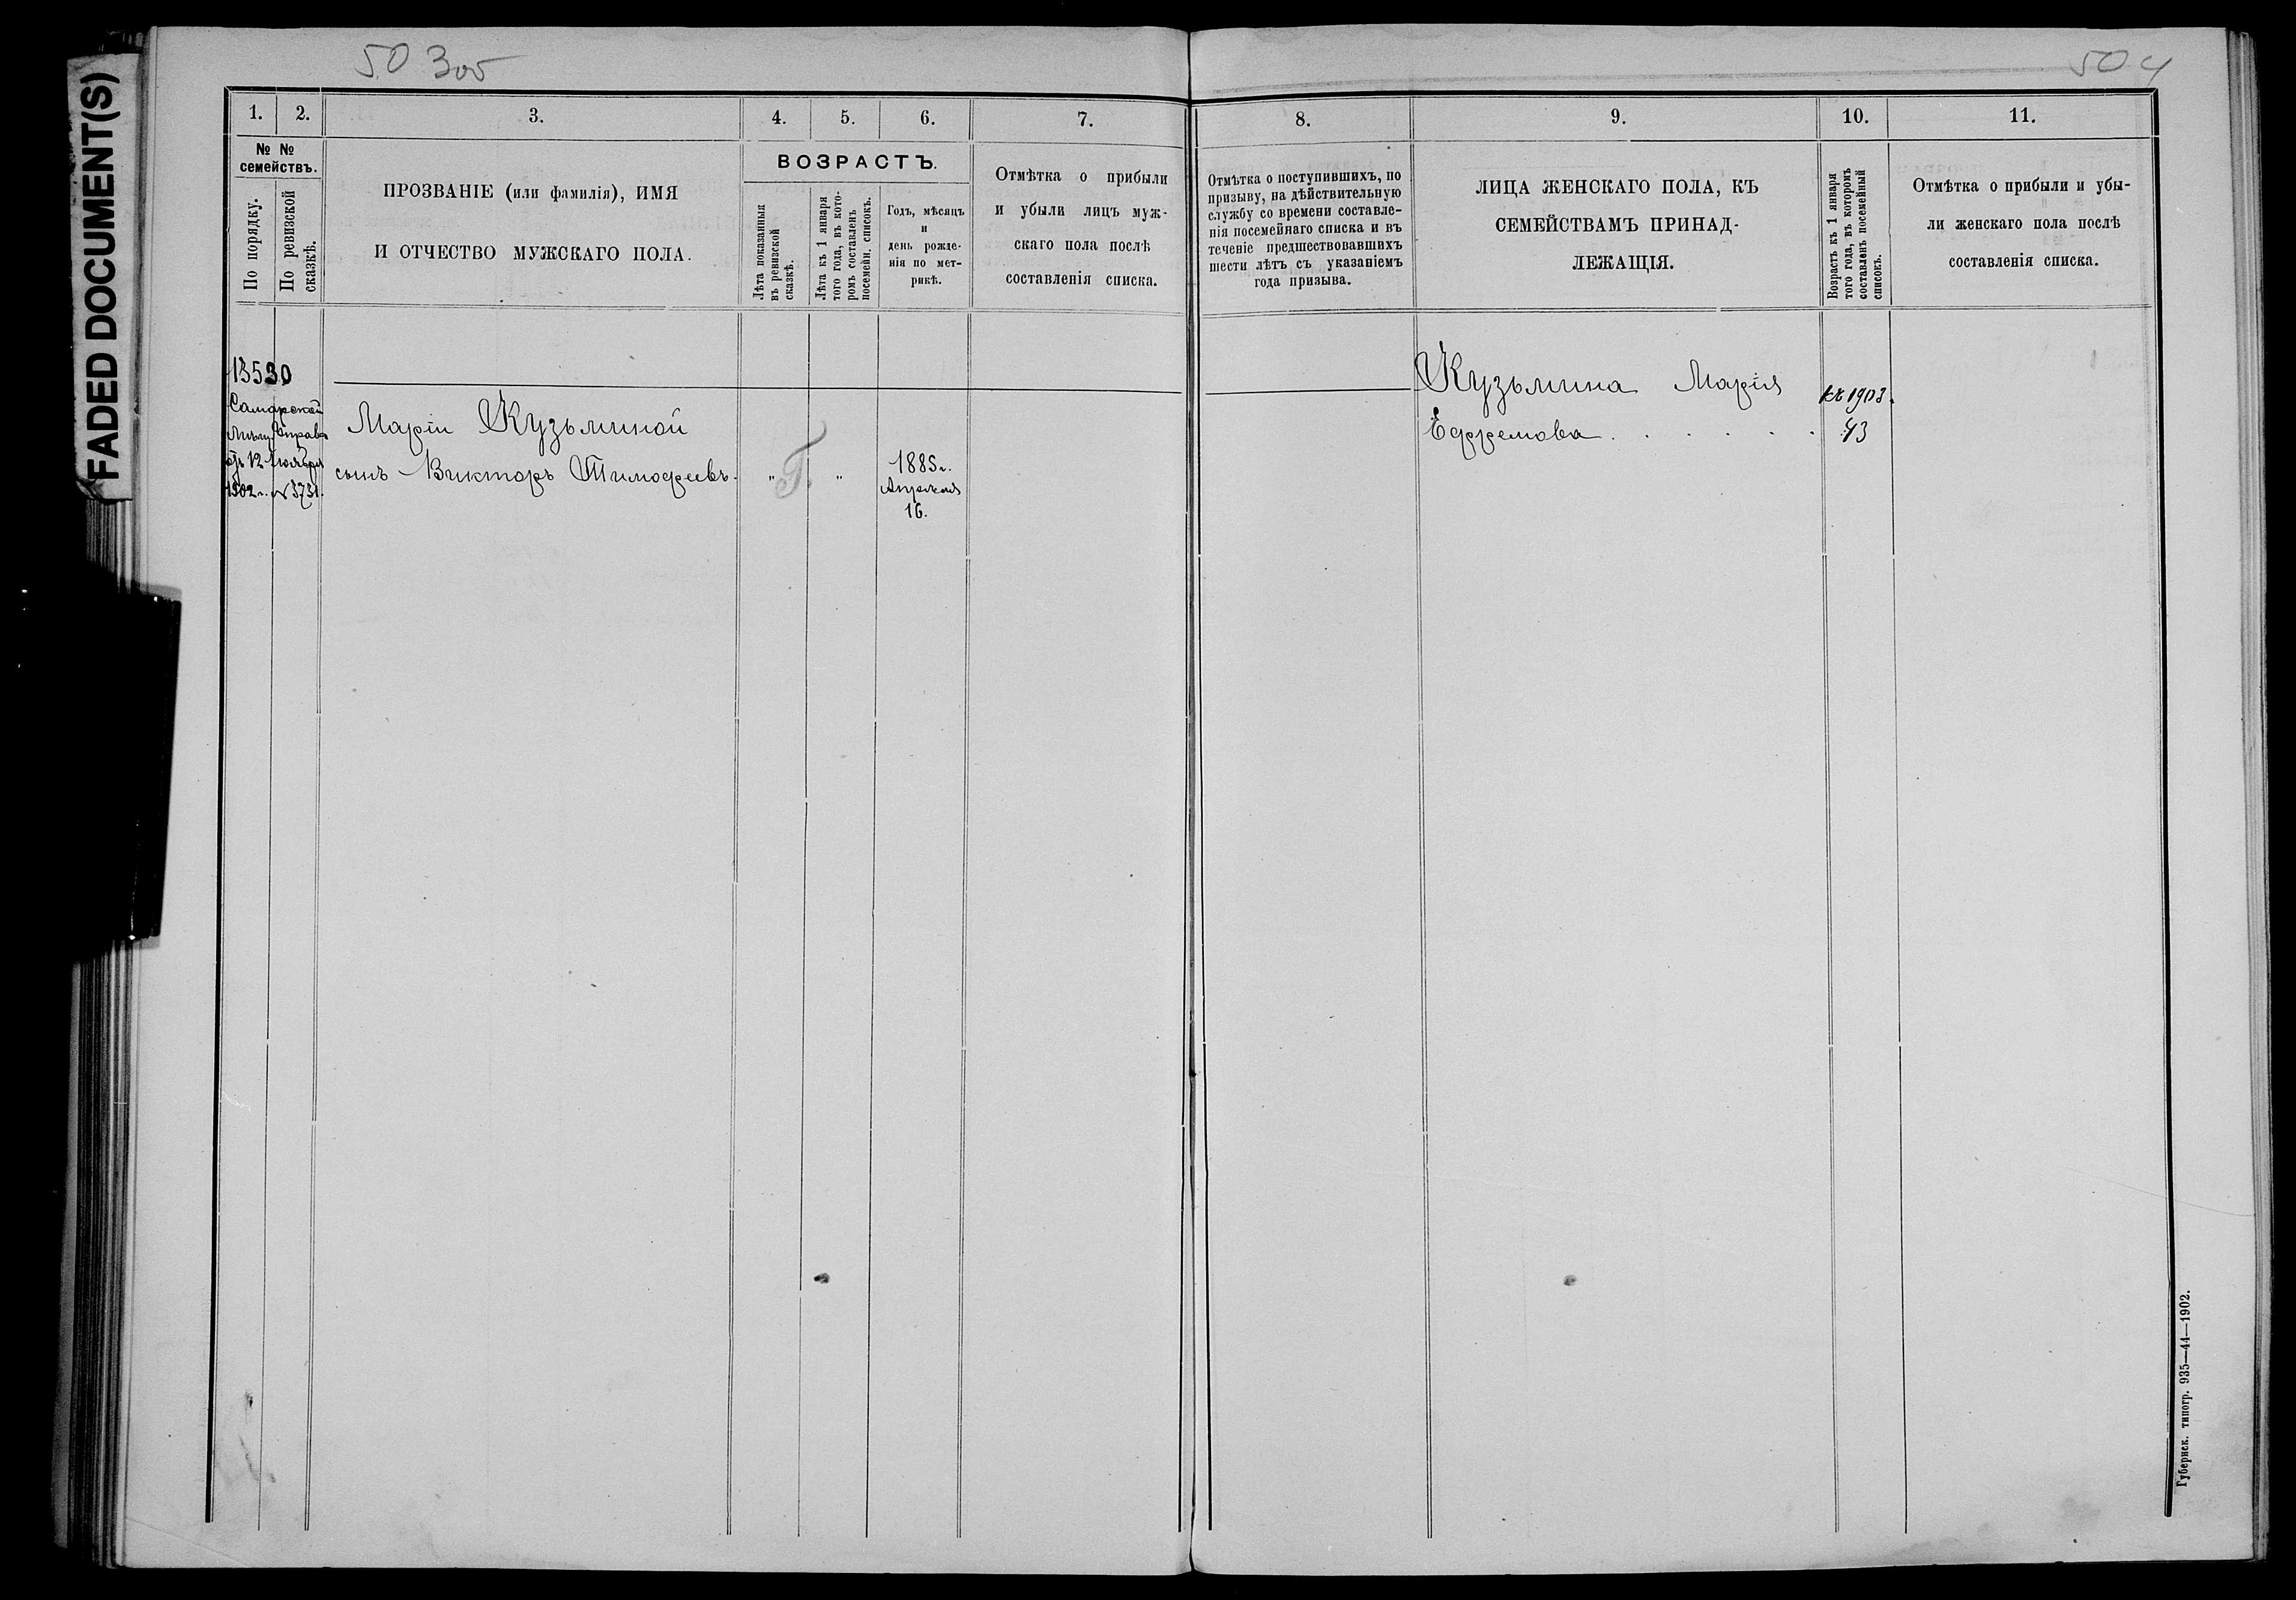 FADED DOCUMENT(S)
50 3об
504
1. 2. 3. 4. 5. 6. 7.
№ №
семействъ.
По порядку.
По ревизской
сказкѣ.
ПРОЗВАНІЕ (или фамилія), ИМЯ
И ОТЧЕСТВО МУЖСКАГО ПОЛА.
ВОЗРАСТЪ.
Лѣта показанныя
въ ревизской
сказкѣ.
Лѣта къ 1 января
того года, въ кото-
ромъ составленъ
посемейн. списокъ.
Годъ, мѣсяцъ
и
день рожде-
нія по мет-
рикѣ.
Отмѣтка о прибыли
и убыли лицъ муж-
скаго пола послѣ
составленія списка.
13530
Самарской
Мѣщ. Управы
отъ 12 Ноября
1902 г. № 3731.
Маріи Кузьминой
сынъ Викторъ Тимофеевъ.
" Г. "
1885 г.
Апрѣля
16.
8. 9. 10. 11.
Отмѣтка о поступившихъ, по
призыву, на дѣйствительную
службу со времени составле-
нія посемейнаго списка и въ
теченіе предшествовавшихъ
шести лѣтъ съ указаніемъ
года призыва.
ЛИЦА ЖЕНСКАГО ПОЛА, КЪ
СЕМЕЙСТВАМЪ ПРИНАД-
ЛЕЖАЩІЯ.
Возрастъ къ 1 января
того года, въ которомъ
составленъ посемейный
списокъ.
Отмѣтка о прибыли и убы-
ли женскаго пола послѣ
составленія списка.
Кузьмина Марія
Ефремова . . . . . .
къ 1903.
43
Губернск. типогр. 935—44—1902.